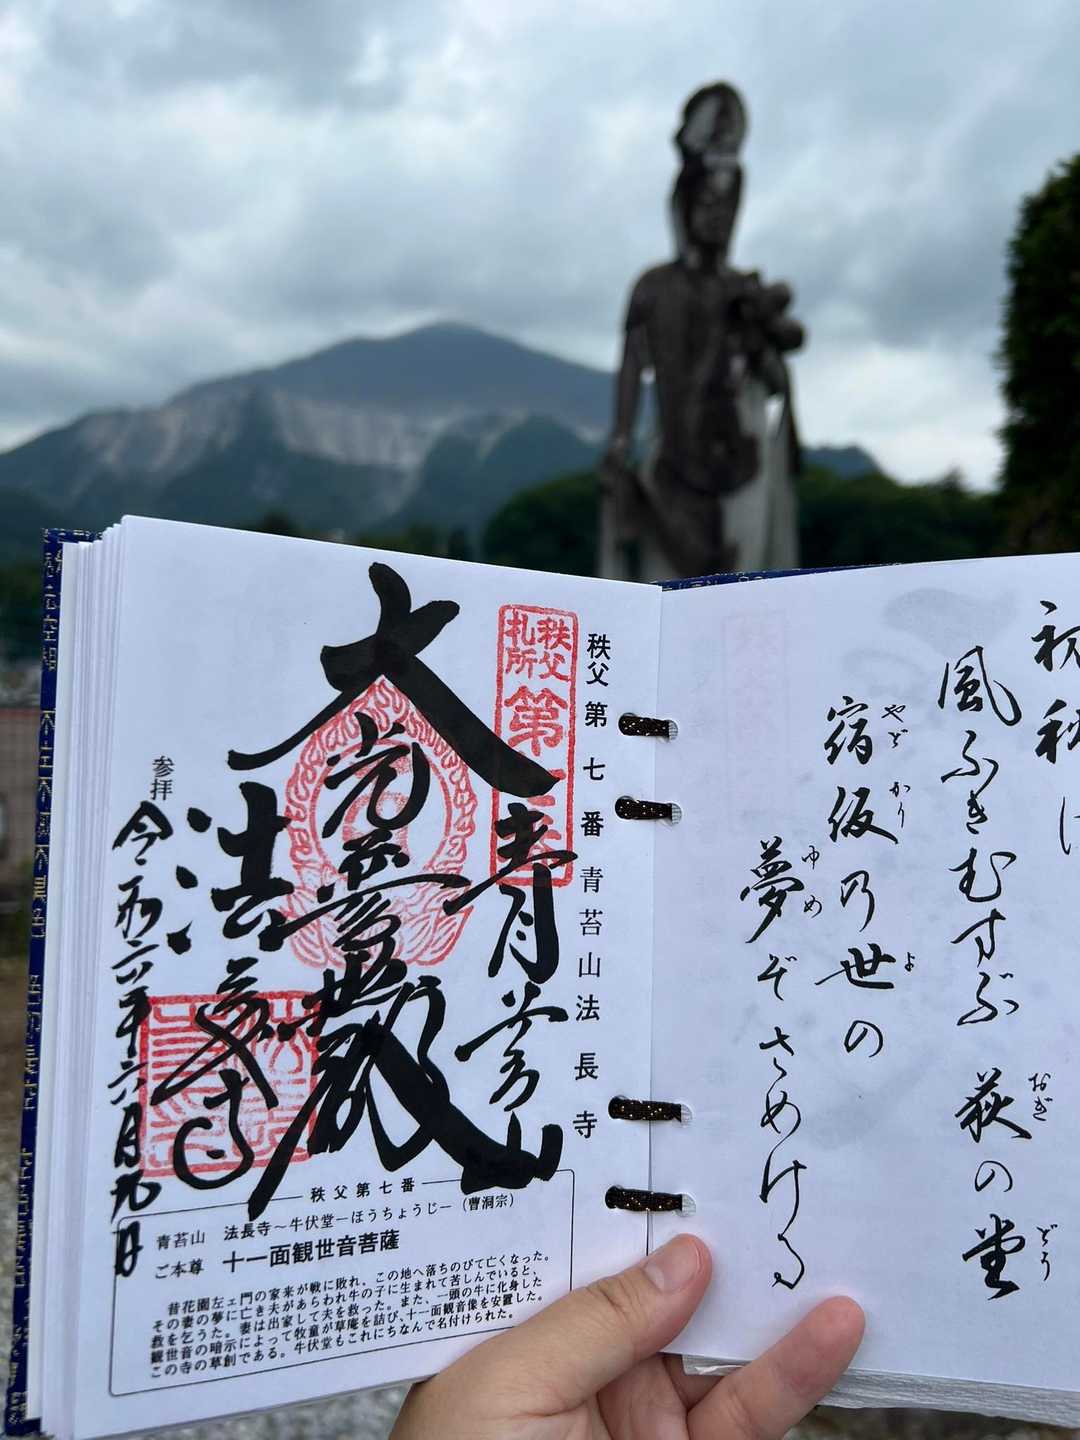 祝秋は
風ふきむすぶ荻の堂
おぎ
どう
宿仮乃世の
やど
かり
よ
夢ぞさめける
ゆめ
秩父第七番青苔山法長寺
秩父
札所
第
青苔山
大光普照殿
法長寺
参拝
令和六年六月九日
秩父第七番
青苔山 法長寺～牛伏堂－ほうちょうじ－（曹洞宗）
ご本尊 十一面観世音菩薩
昔花園左ェ門の家来が戦に敗れ、この地へ落ちのびて亡くなった。
その妻の夢に亡き夫があらわれ牛の子に生まれて苦しんでいると、
救を乞うた。妻は出家して夫を救った。また、一頭の牛に化身した
観世音の暗示によって牧童が草庵を詰び、十一面観音像を安置した。
この寺の草創である。牛伏堂もこれにちなんで名付けられた。